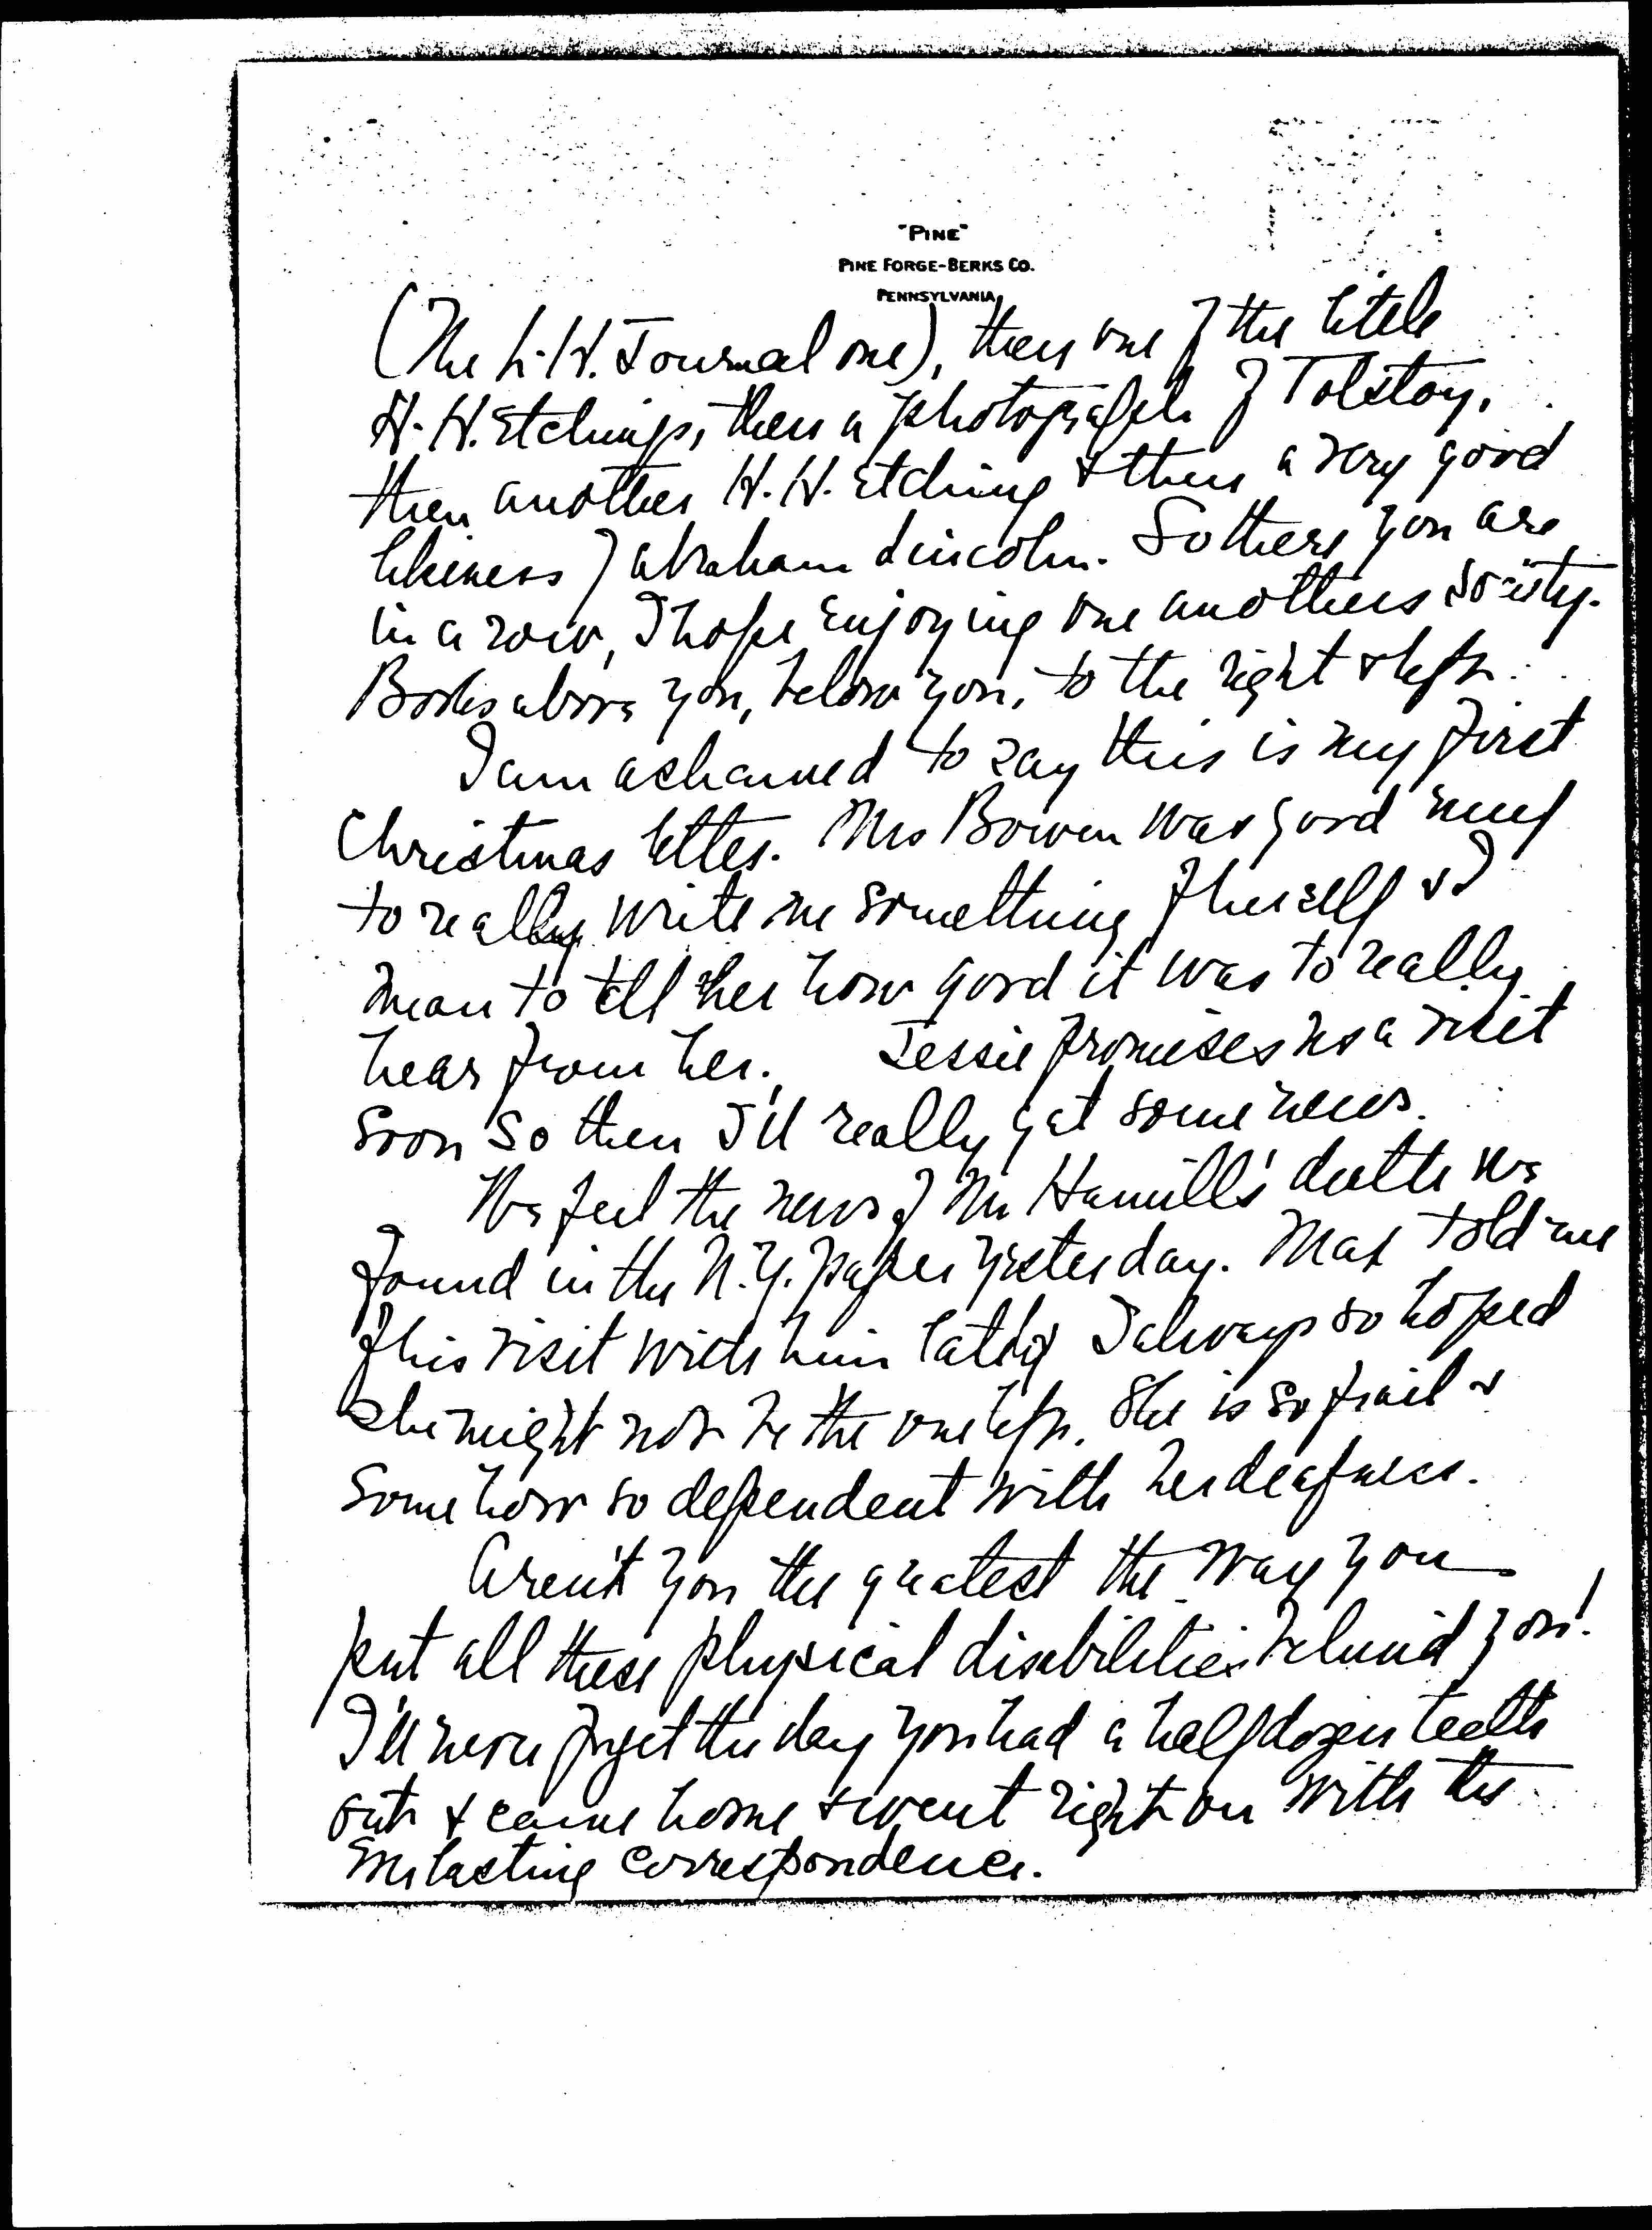 "PINE"
PINE FORGE-BERKS CO.
PENNSYLVANIA
(The L.H. Journal one), then one of the little
H.H. Etchings, then a photograph of Tolstoy,
then another H.H. Etching & then a very good
likeness of Abraham Lincoln. So there you are
in a row, I hope enjoying one anothers society.
Books above you, below you, to the right & left.
I am ashamed to say this is my first
Christmas letter. Mrs Bowen was good
to really write me something of herself & I
mean to tell her how good it was to really
hear from her. Jessie promises us a visit
soon so then I'll really get some news.
We feel the news of Mr Hamill's death we
found in the N.Y. paper yesterday. Max told me
of his visit with him lately I always so hoped
she might not be the one left. She is so frail &
somehow so dependent with her deafness.
Aren't you the greatest the way you
put all these physical disabilities behind you!
I'll never forget the day you had a half dozen teeth
out & came home & went right on with the
Everlasting correspondence.